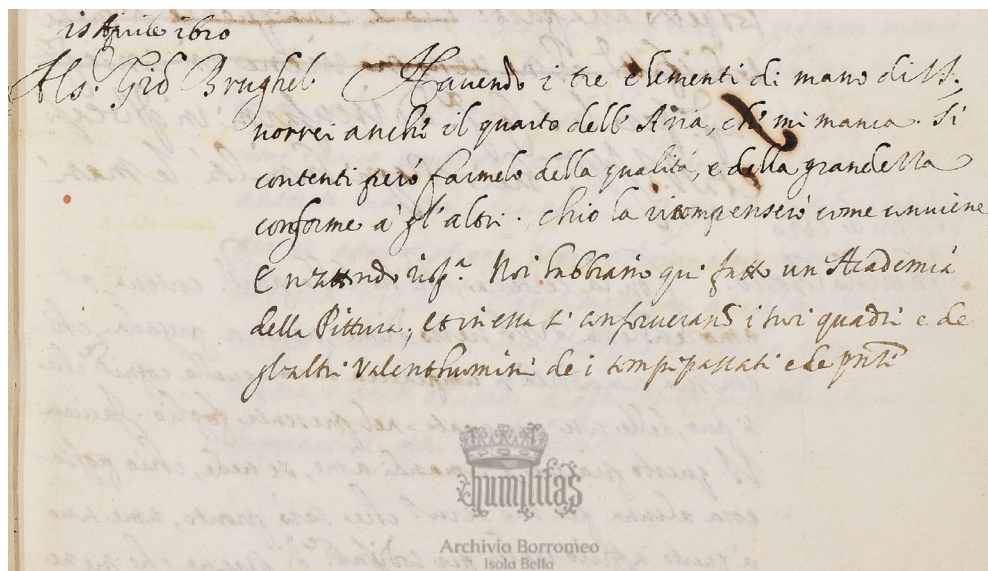 15 Aprile 1620
Al s. Gio Brughel. Havendo i tre elementi di mano di VS.
vorrei anche il quarto dell' Aria, che mi manca. Si
contenti però farmelo della qualità, e della grandezza
conforme à gl'altri. chio la ricompenserò come conviene
E n'attendo risp.a Noi habbiamo qui fatto un Academia
della Pittura, et in essa si conserveranō i suoi quadri e de
gl'altri valenthuomini de i tempi passati e de pnti
humilitas
Archivio Borromeo
Isola Bella